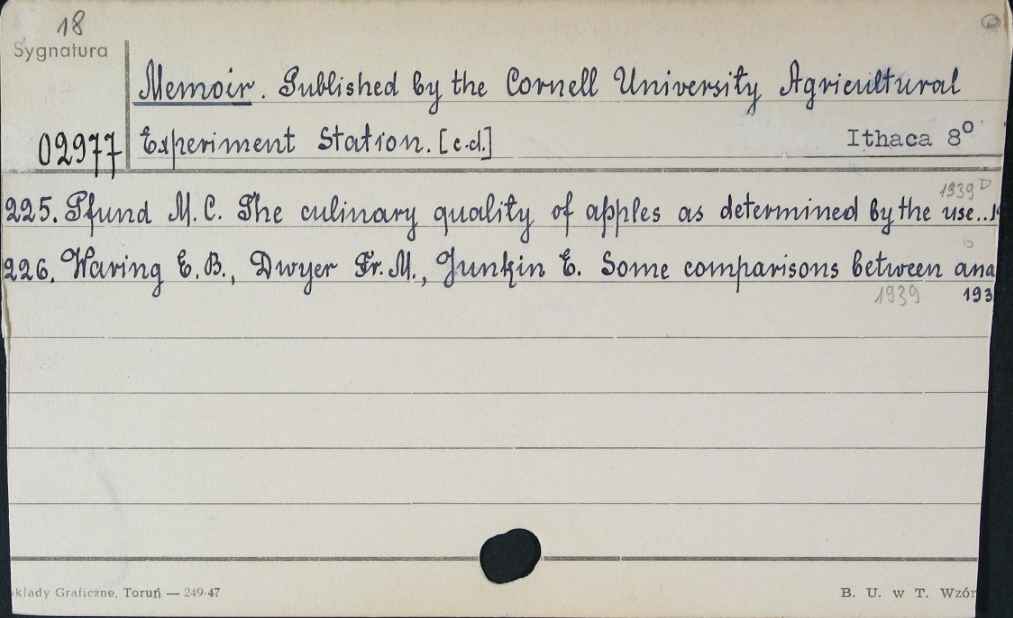 18
Sygnatura
Memoir. Published by the Cornell University Agricultural
02977 Experiment Station. [c.d.] Ithaca 8°
1939 D
225. Pfund M.C. The culinary quality of apples as determined by the use..
226. Waring E.B., Dwyer Fr. M., Junkin E. Some comparisons between ana
1939 193
kłady Graficzne, Toruń — 249-47 B. U. w T. Wzór